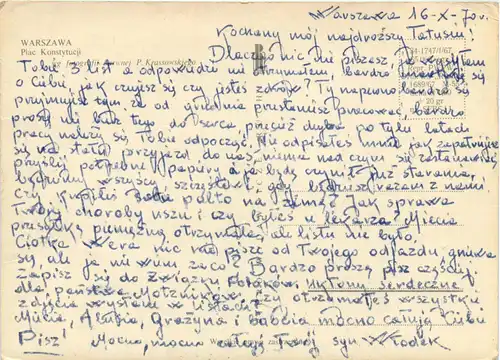 Warszawa 16-X-70r.
WARSZAWA
Plac Konstytucji
Kochany mój najdroższy Tatusiu!
Dlaczego nic nie piszesz, ja wysłałem
Tobie 3 list a odpowiedzi nie otrzymałem, bardzo martwię się
o Ciebie, jak czujesz się czy jesteś zdrów? Ty napewno bardzo się
przyjmujesz tym, że od grudnia przestaniesz pracować, bardzo
proszę nie bierz tego do serca, przecież chyba po tylu latach
pracy należy się Tobie odpocząć. Nie odpisałeś mnie jak zapatrujesz
się na stały przyjazd do nas, niema nad czym się zastanawiać
przyślij potrzebne papiery a ja będę czynił już starania,
będziemy wszyscy szczęśliwi, gdy będziesz razem z nami.
Czy kupiłeś sobie palto na zimę? Jak sprawa
Twojej choroby uszu i czy byłeś u lekarza? Miecia
przesyłkę pieniężną otrzymała, ale listu nie było,
Ciotka Wera nic nie pisze od Twojego odjazdu, gniewa
się, ale ja nie wiem zaco? Bardzo proszę pisz częściej.
Zapisz się do Związku Polaków. Ukłony serdeczne
dla państwa Czy otrzymałeś wszystkie
zdjęcia wysłane w listach?
Mila, Grażyna i babcia mocno całują Ciebie
Pisz! Mocno, mocno całuję Twój syn Włodek